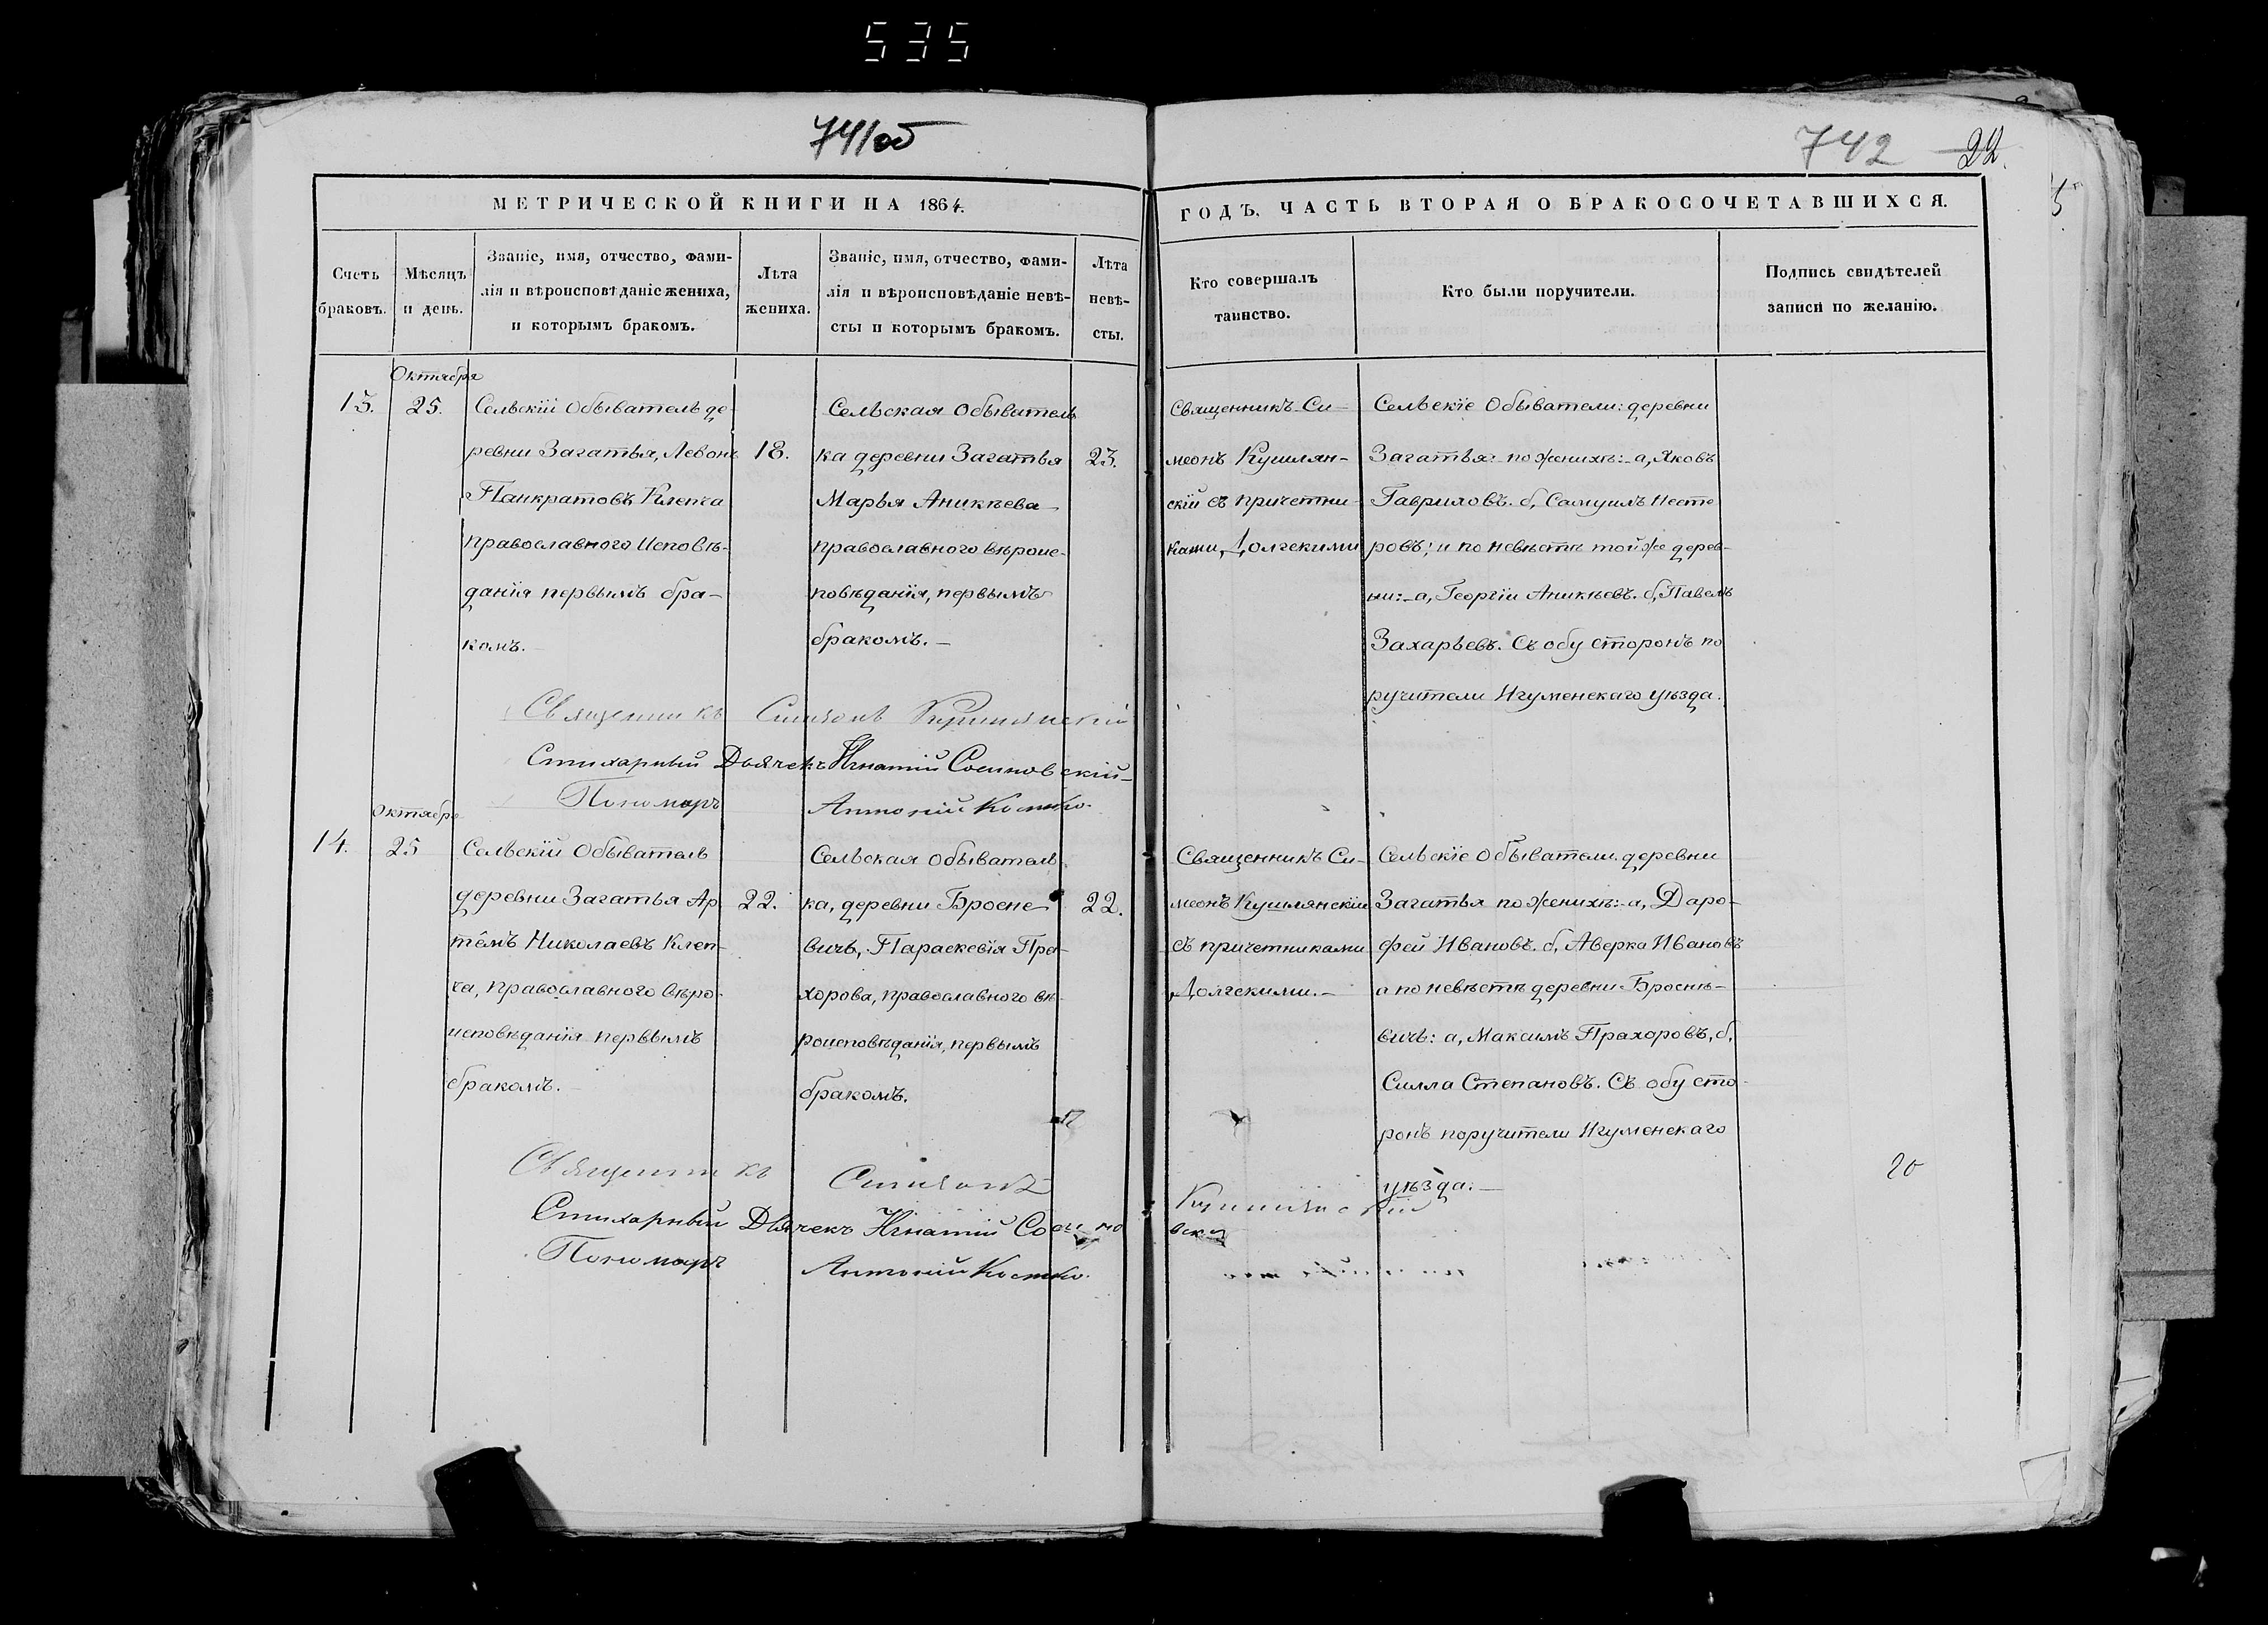 535
741об
742 22.
МЕТРИЧЕСКОЙ КНИГИ НА 1864.
ГОДЪ, ЧАСТЬ ВТОРАЯ О БРАКОСОЧЕТАВШИХСЯ.
Счетъ
браковъ.
Мѣсяцъ
и день.
Званіе, имя, отчество, фами-
лія и вѣроисповѣданіе жениха,
и которымъ бракомъ.
Лѣта
жениха.
Званіе, имя, отчество, фами-
лія и вѣроисповѣданіе невѣ-
сты и которымъ бракомъ.
Лѣта
невѣ-
сты.
Кто совершалъ
таинство.
Кто были поручители.
Подпись свидѣтелей
записи по желанію.
Октября
13.
25.
Сельскій Обыватель де-
ревни Загатья, Левонъ
Панкратовъ Клепча
православного Исповѣ-
данія первымъ бра-
комъ.
18.
Сельская Обыватель
ка деревни Загатья
Марья Аникѣева
православного вѣроис-
повѣданія, первымъ
бракомъ.
23.
Священникъ Си-
меонъ Кушлян-
скій съ причетни-
ками, Долгскими
Сельскіе Обыватели: деревни
Загатья: по женихѣ:-а, Яковъ
Гавриловъ. б, Самуилъ Несте
ровъ; и по невѣстѣ той же дерев-
ни:-а, Георгіи Аникѣевъ. б, Павелъ
Захарьевъ. Съ обу сторонъ по
ручители Игуменскаго уѣзда.
Священникъ Симеонъ Кушлянскій
Стихарный Дьячекъ Игнатій Сосиновскій
Пономарь Антоній Костко.
Октября
14.
25
Сельскій Обыватель
деревни Загатья Ар
тёмъ Николаевъ Клеп-
ча, православного вѣро-
исповѣданія первымъ
бракомъ.
22.
Сельская Обыватель
ка, деревни Бросне
вичъ, Параскевія Пра-
хорова, православного вѣ
роисповѣданія, первымъ
бракомъ.
22.
Священникъ Си-
меонъ Кушлянскій
съ причетниками
Долгскими.
Сельскіе Обыватели деревни
Загатья по женихѣ:-а, Даро-
фей Ивановъ. б, Аверка Ивановъ
а по невѣстѣ деревни Броснѣ-
вичъ: а, Максимъ Прахоровъ, б,
Силла Степановъ. Съ обу сто-
ронъ поручители Игуменскаго
уѣзда.
20
Священникъ Симеонъ Кушлянскій
Стихарный Дьячекъ Игнатій Сосиновскій
Пономарь Антоній Костко.